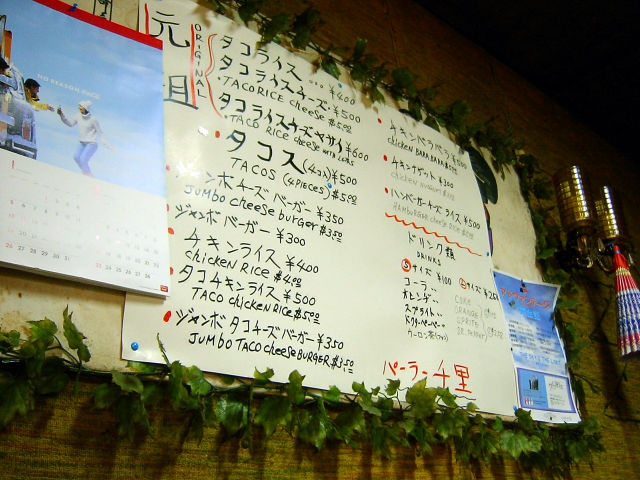 NO REASON PACK
元
祖
ORIGINAL
タコライス … ¥400
タコライスチーズ・¥500
・TACO RICE cheese $5.00
タコライスチーズヤサイ ¥600
TACO RICE cheese with
タコス (4コ) ¥500
TACOS (4 PIECES) $5.00
ンボチーズ バーガー ¥350
JUMBO cheese burger $3.50
ジャンボ バーガー ¥300
チキンライス ¥400
chicken RICE $4.00
タコチキンライス ¥500
TACO chicken RICE $5.00
ジャンボ タコチーズバーガー ¥350
JUMBO TACO cheese BURGER $3.50
チキンバラバラ ¥500
chicken BARA BARA
チキンナゲット ¥300
chicken nugget
ハンバーガーチーズライス ¥500
HAMBURGER cheese RICE
ドリンク類
DRINKS
サイズ ¥100
サイズ ¥250
コーラ
COKE
オレンヂ
ORANGE
スプライト
SPRITE
ドクターペーパー
DR. PEPPER
ウーロン茶
パーラー千里